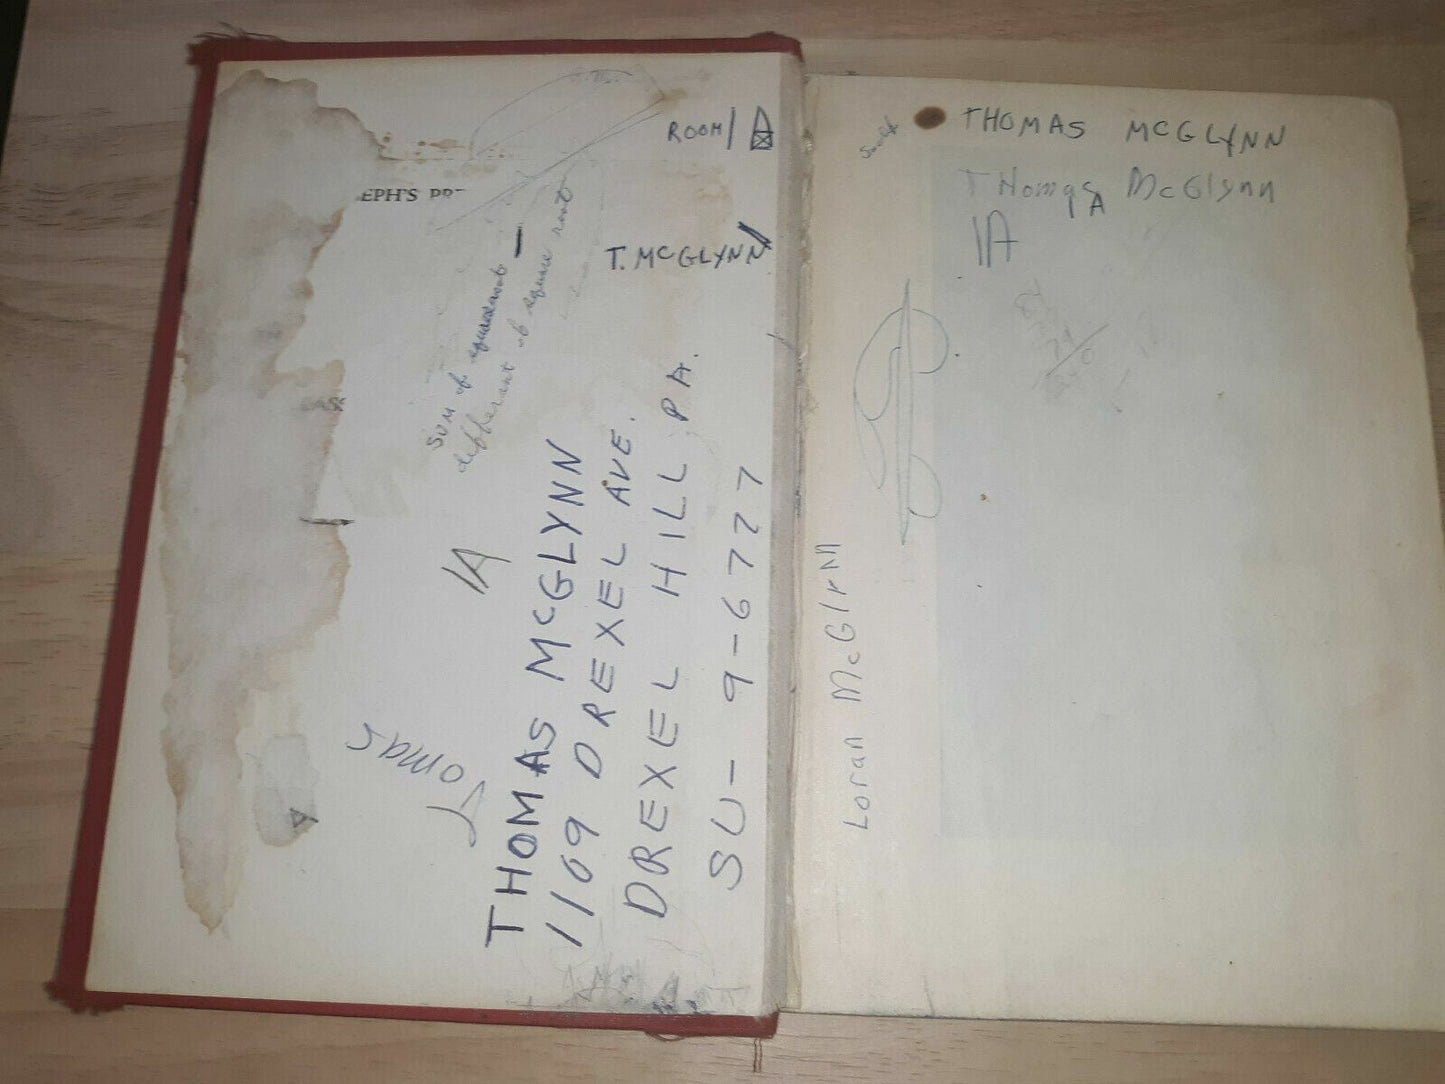 ROOM 1A
EPH'S PR
T. McGLYNN
SUM of squareroot -
different of square root
1A
THOMAS McGLYNN
1109 DREXEL AVE.
DREXEL HILL PA.
SU-9-6727
Tomas
THOMAS McGLYNN
THomas McGlynn
1A
1A
Loran McGlynn